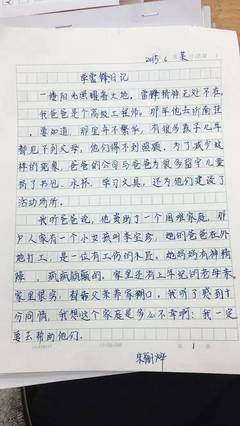 2015.6 某
学雷锋日记
一缕阳光照暖着大地,雷锋精神无处不在。
我爸爸是个高级工程师,那年他去济南挂
。要知道,那里并不繁华,有很多孩子几年
都见不到父母,他们得不到照顾。为了减少这
样的现象,爸爸的公司与爸爸为很多留守儿童
买了书包、水杯、学习文具,还为他们建设了
活动场所。
我听爸爸说,他资助了一个困难家庭。那
户人家有一个小女孩叫李安珍,她的爸爸在外
地打工,是一位有工伤的木匠,她妈妈有神精
障,疯疯颠颠的。家里还有上年纪的爷母亲
家里很穷,靠着父亲养家糊口。我听了感到十
分同情。我想这个家庭是多么不幸啊!我一定
要去帮助他们。
第 1 页